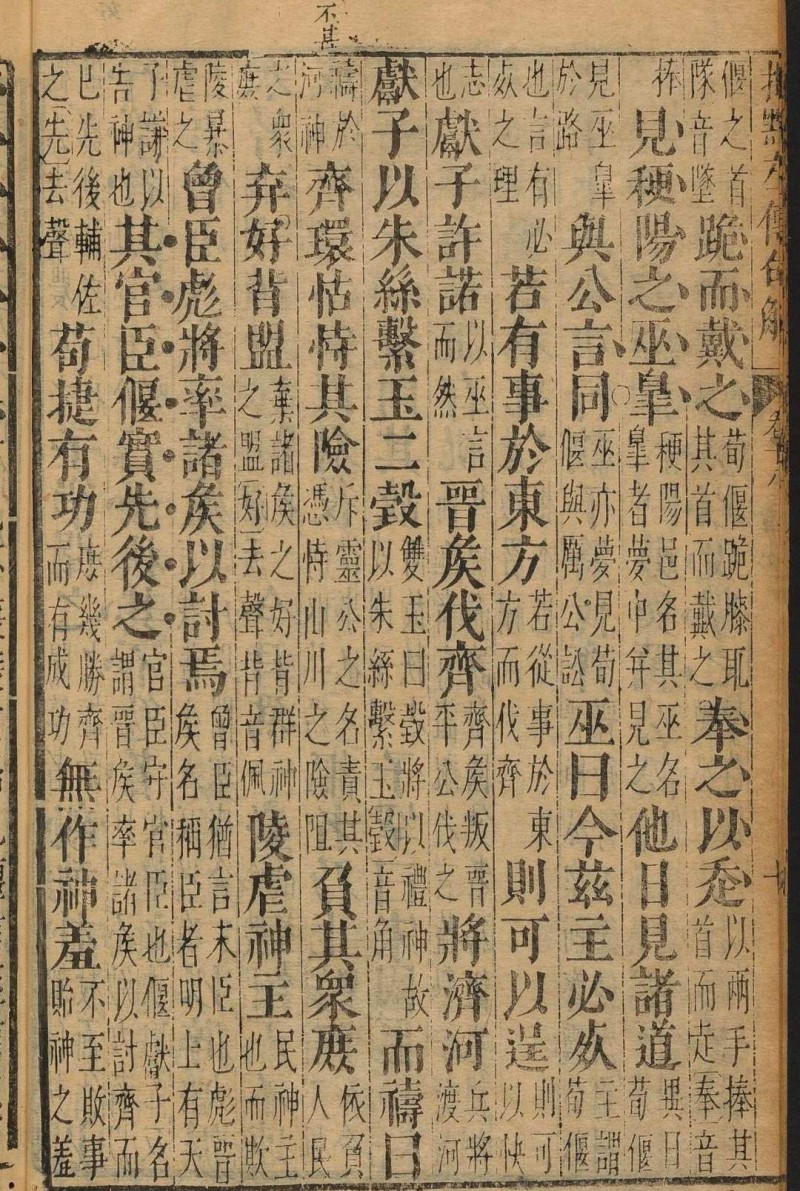 不甚
偃之首隊音墜跪而戴之荀偃跪膝取其首而戴之奉之以赱以兩手捧其首而走奉音
捧見梗陽之巫皐梗陽邑名其巫名皐者夢中并見之他日見諸道異日荀偃
見巫皐於路與公言同巫亦夢見荀偃與厲公訟巫曰今茲主必死主謂荀偃
也言有必死之理若有事於東方若從事於東方而伐齊則可以逞則可以快
志也獻子許諾以巫言而然晉侯伐齊齊侯叛晉平公伐之將濟河兵將渡河
獻子以朱絲繫玉二瑴雙玉曰瑴將以禮神故以朱絲繫玉瑴音角而禱曰
禱於河神齊環怙恃其險斥靈公之名責其憑恃山川之險阻負其衆庶依負人民
之衆庶弃好背盟棄諸侯之好背群神之盟好去聲背音佩陵虐神主民神主也而欺
陵暴虐之曾臣彪將率諸侯以討焉曾臣猶言末臣也彪晉侯名稱臣者明上有天
子謙以告神也其官臣偃實先後之官臣守官臣也偃獻子名謂晉侯率諸侯以討齊而
已先後輔佐之先去聲苟捷有功庶幾勝齊而有成功無作神羞不至敗事貽神之羞